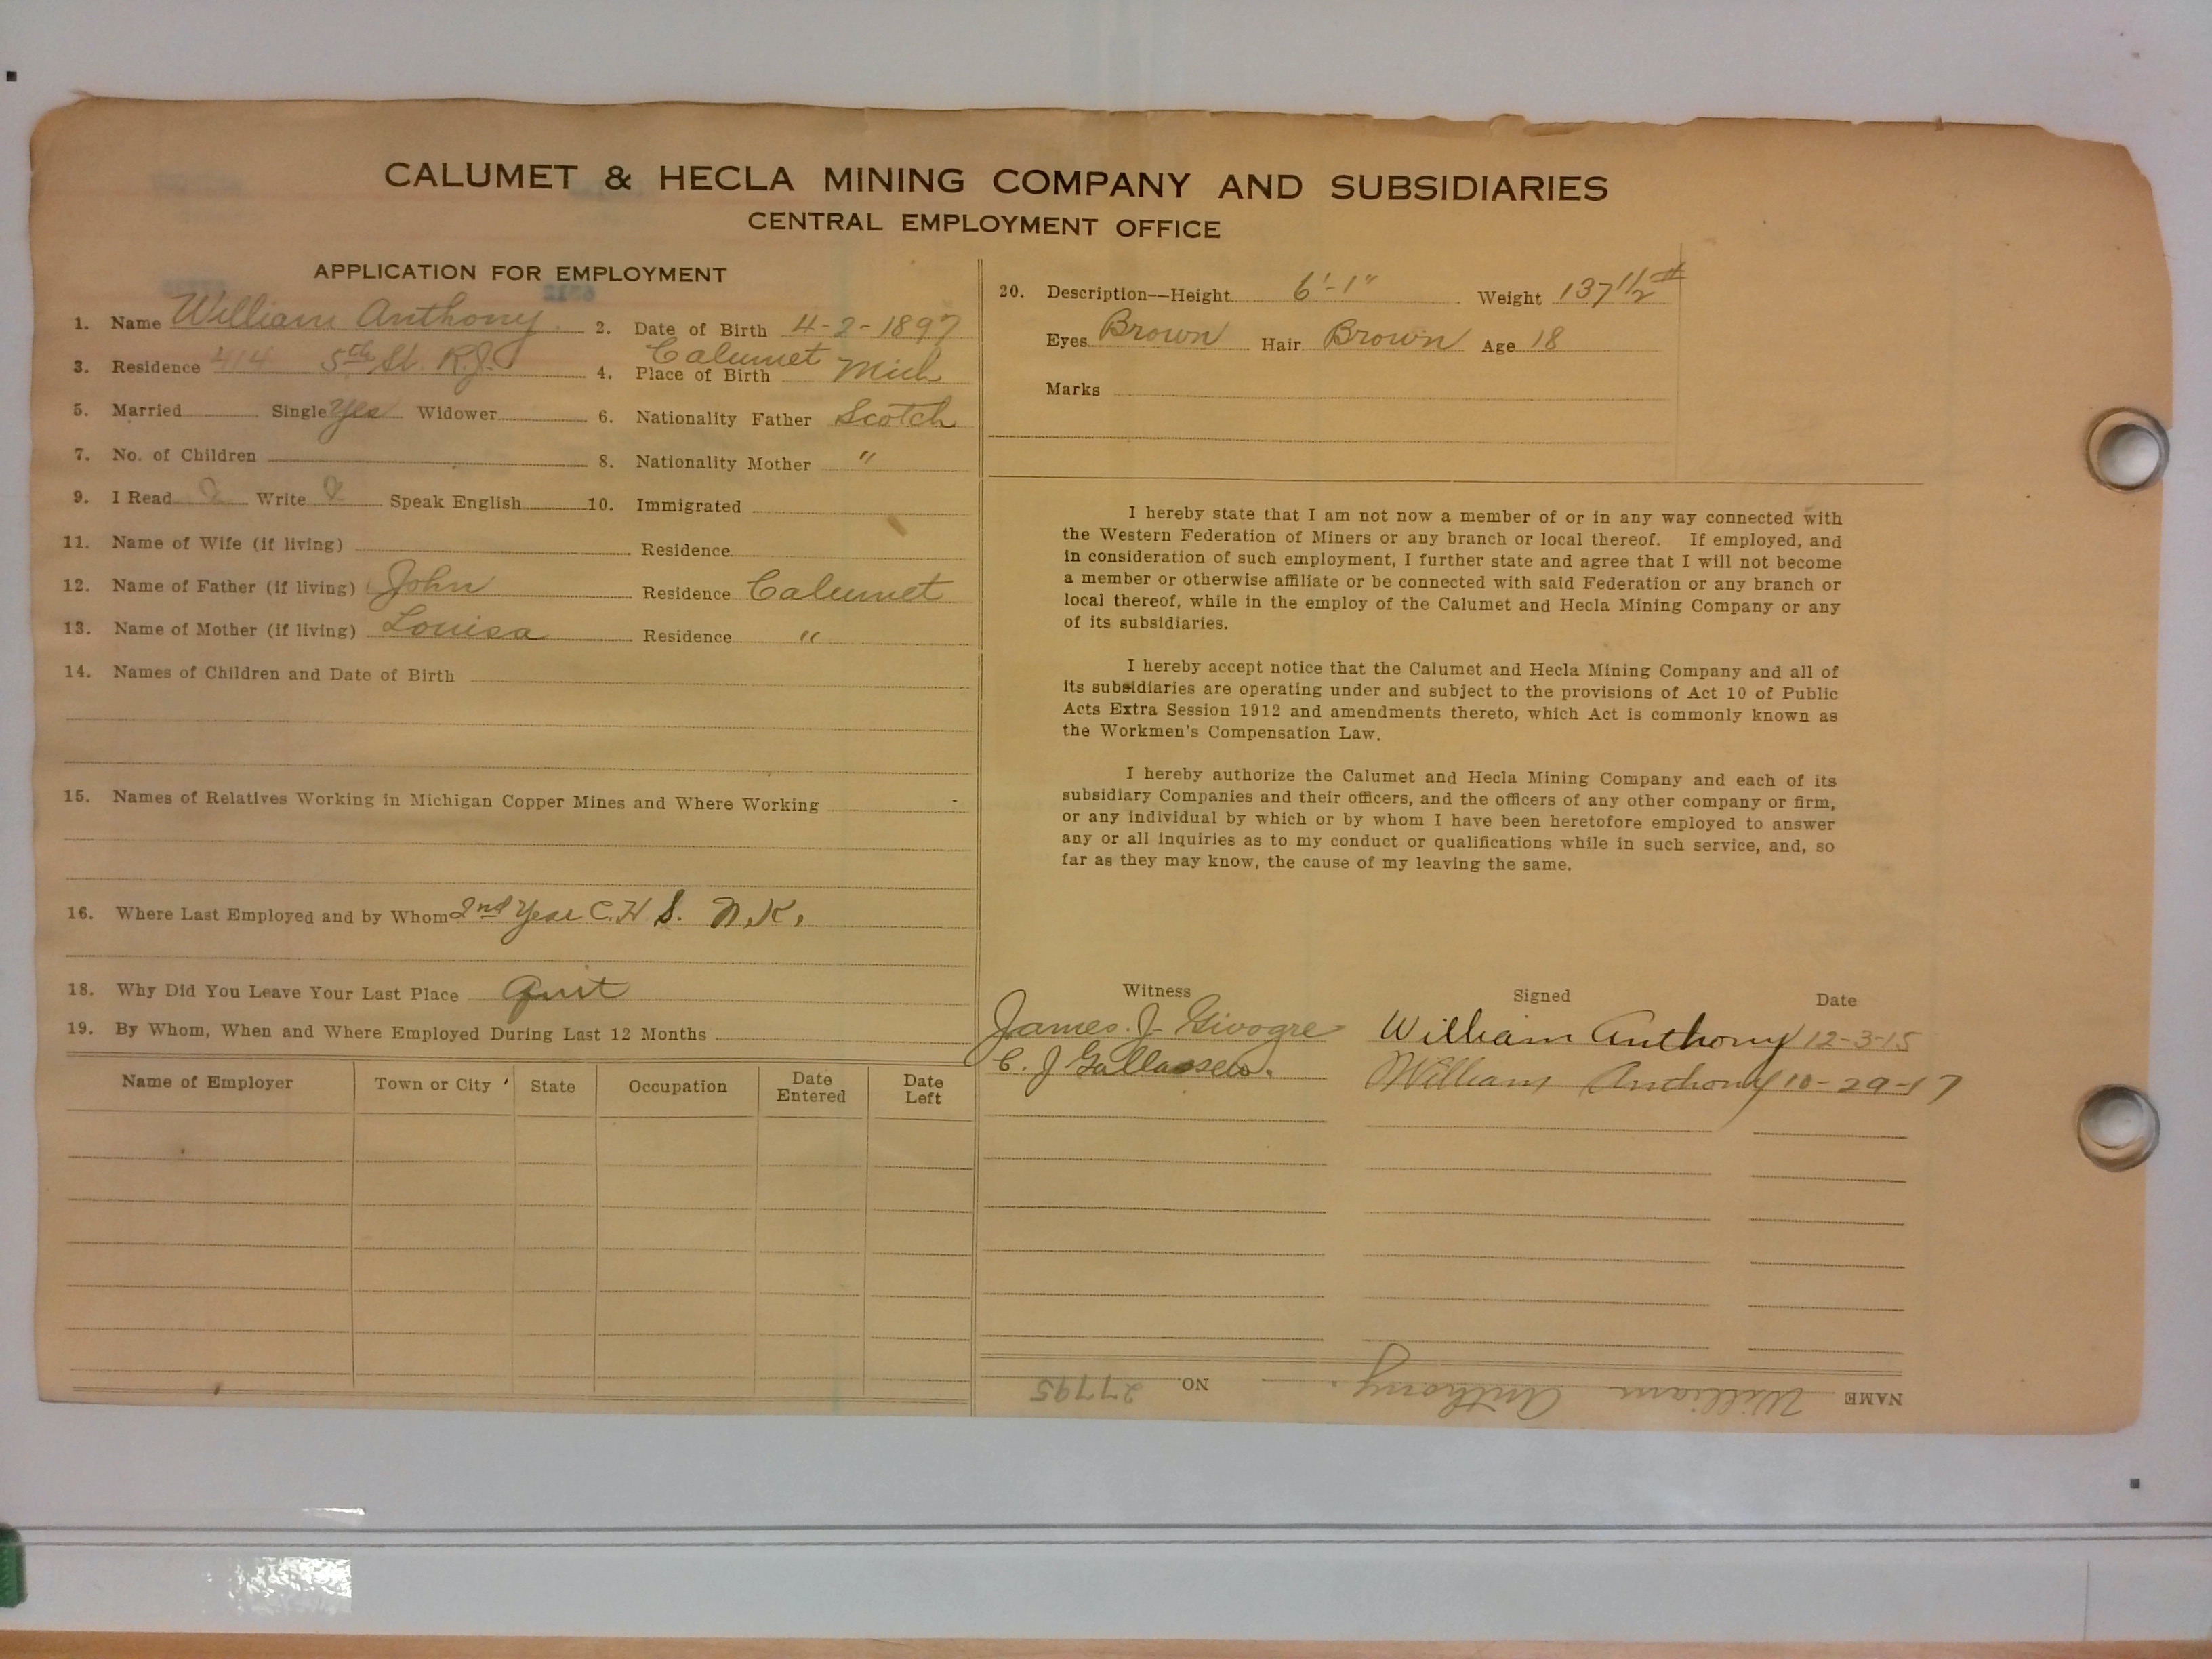 CALUMET & HECLA MINING COMPANY AND SUBSIDIARIES
CENTRAL EMPLOYMENT OFFICE
APPLICATION FOR EMPLOYMENT
1. Name William Anthony 2. Date of Birth 4-2-1897
3. Residence 414 5th St. R.J. 4. Place of Birth Calumet Mich
5. Married Single Yes Widower 6. Nationality Father Scotch
7. No. of Children 8. Nationality Mother "
9. I Read Write Speak English 10. Immigrated
11. Name of Wife (if living) Residence
12. Name of Father (if living) John Residence Calumet
13. Name of Mother (if living) Louisa Residence "
14. Names of Children and Date of Birth
15. Names of Relatives Working in Michigan Copper Mines and Where Working
16. Where Last Employed and by Whom 2nd Year C.H.S. N.K.
18. Why Did You Leave Your Last Place Quit
19. By Whom, When and Where Employed During Last 12 Months
Name of Employer Town or City State Occupation Date Entered Date Left
20. Description—Height 6'-1" Weight 137 1/2 #
Eyes Brown Hair Brown Age 18
Marks
I hereby state that I am not now a member of or in any way connected with
the Western Federation of Miners or any branch or local thereof. If employed, and
in consideration of such employment, I further state and agree that I will not become
a member or otherwise affiliate or be connected with said Federation or any branch or
local thereof, while in the employ of the Calumet and Hecla Mining Company or any
of its subsidiaries.
I hereby accept notice that the Calumet and Hecla Mining Company and all of
its subsidiaries are operating under and subject to the provisions of Act 10 of Public
Acts Extra Session 1912 and amendments thereto, which Act is commonly known as
the Workmen's Compensation Law.
I hereby authorize the Calumet and Hecla Mining Company and each of its
subsidiary Companies and their officers, and the officers of any other company or firm,
or any individual by which or by whom I have been heretofore employed to answer
any or all inquiries as to my conduct or qualifications while in such service, and, so
far as they may know, the cause of my leaving the same.
Witness Signed Date
James. J. Givogre William Anthony 12-3-15
C. J. William Anthony 10-29-17
NAME William Anthony. NO. 27795